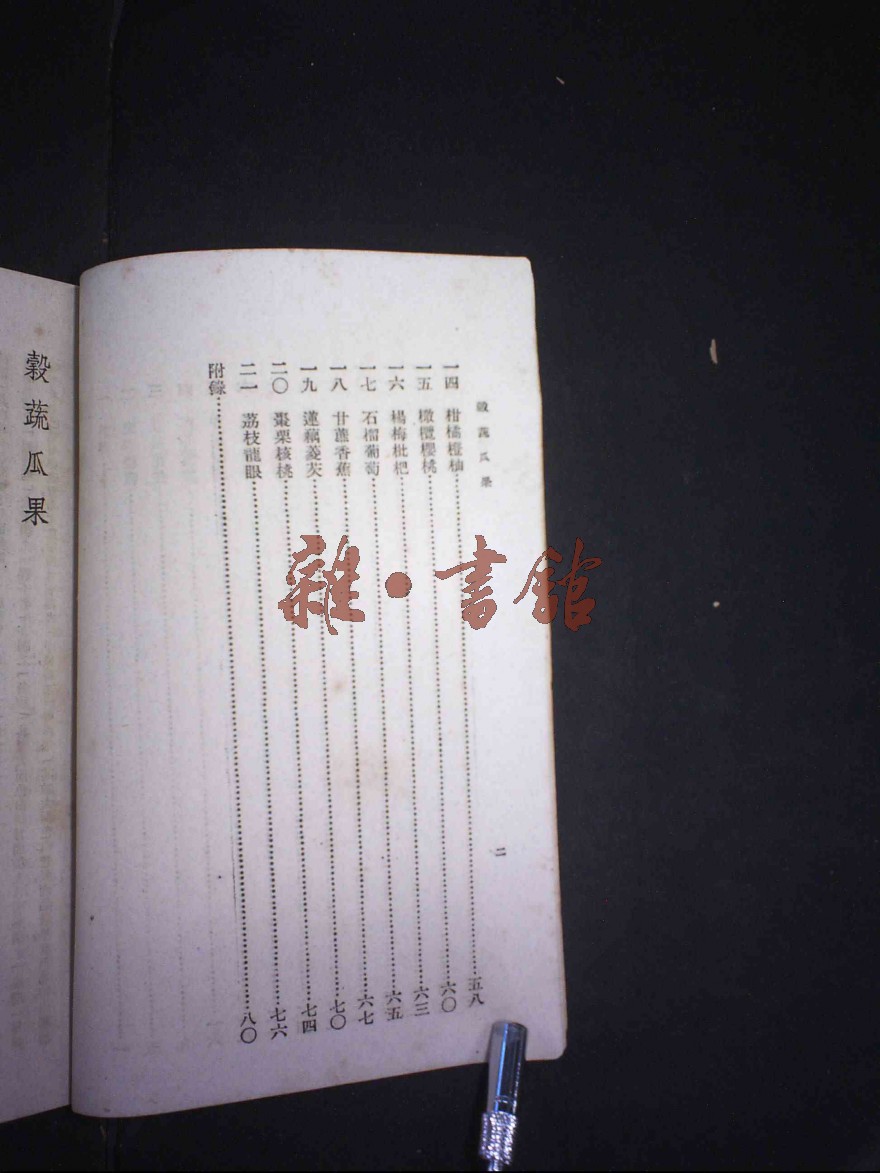 穀蔬瓜果
二
一四 柑橘橙柚……五八
一五 橄欖櫻桃……六〇
一六 楊梅枇杷……六三
一七 石榴葡萄……六五
一八 甘蔗香蕉……六七
一九 蓮藕菱芡……七〇
二〇 棗栗核桃……七四
二一 荔枝龍眼……七六
附錄……八〇
穀蔬瓜果
雜·書館